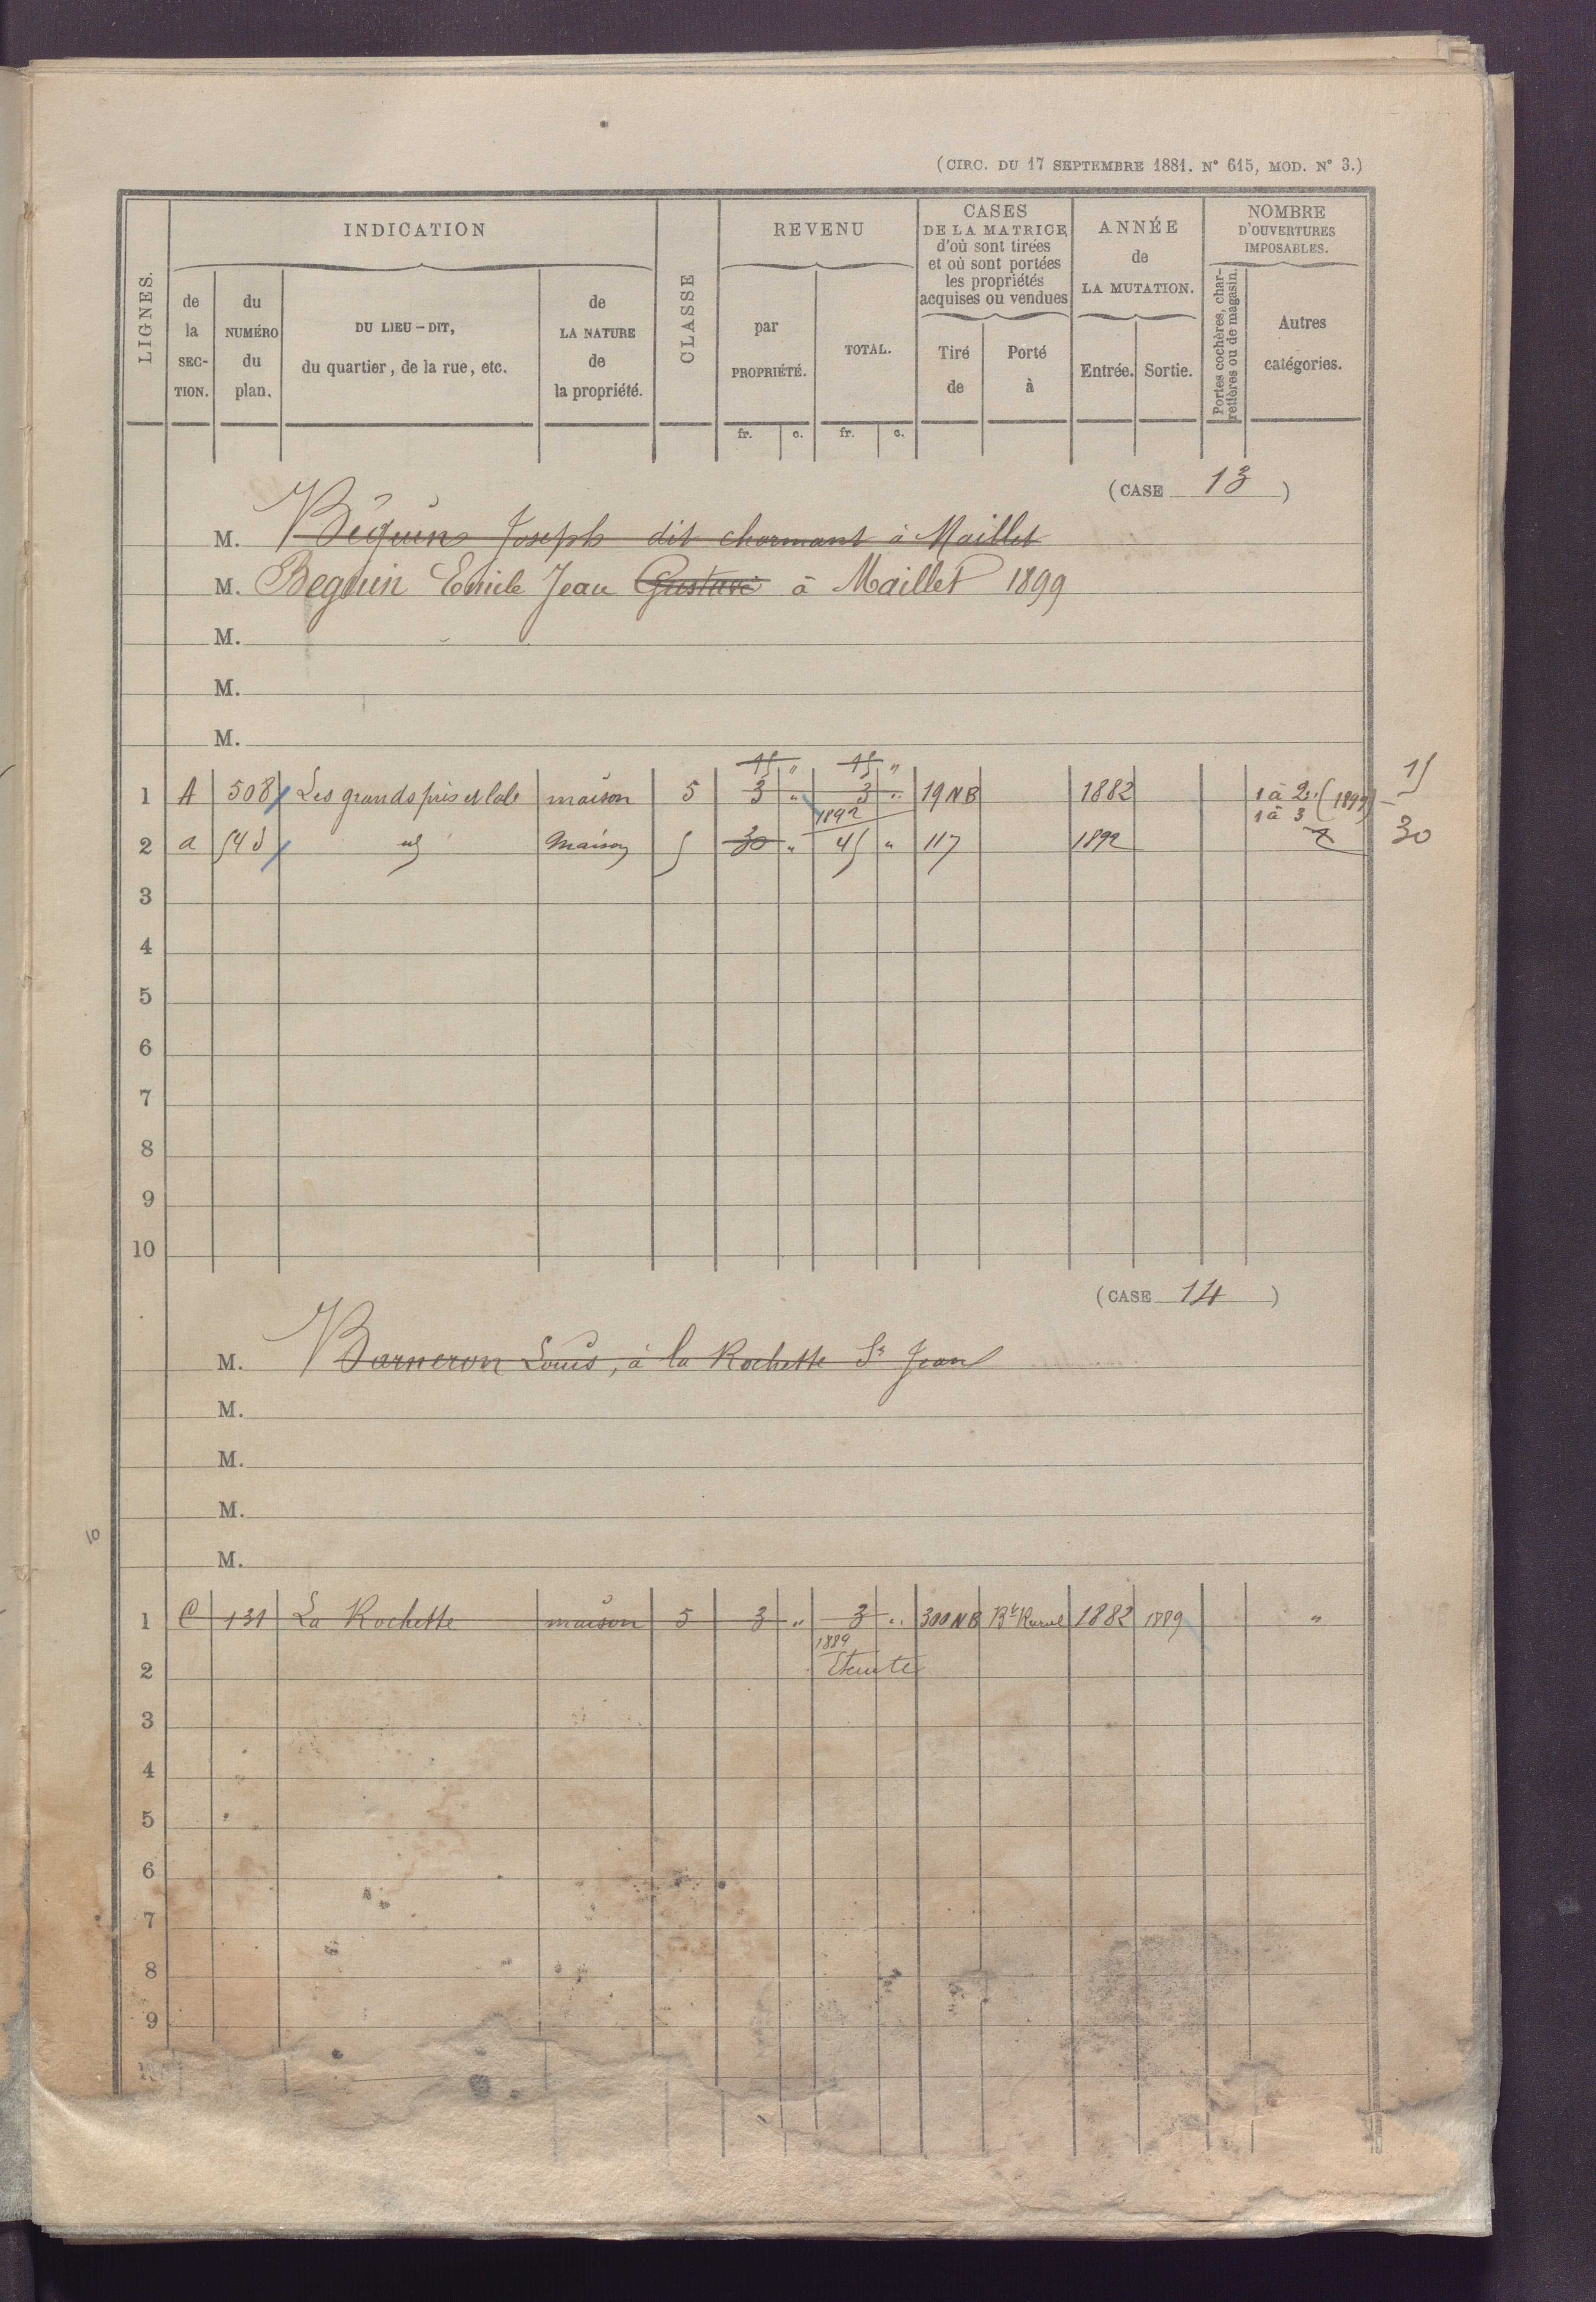 (CIRC. DU 17 SEPTEMBRE 1881. N° 615, MOD. N° 3.)
LIGNES.
INDICATION
de la SECTION.
du NUMÉRO du plan.
DU LIEU-DIT, du quartier, de la rue, etc.
de LA NATURE de la propriété.
CLASSE
REVENU
par PROPRIÉTÉ.
TOTAL.
CASES DE LA MATRICE d'où sont tirées et où sont portées les propriétés acquises ou vendues
Tiré de
Porté à
ANNÉE de LA MUTATION.
Entrée.
Sortie.
NOMBRE D'OUVERTURES IMPOSABLES.
Portes cochères, charretières ou de magasin.
Autres catégories.
fr. c. fr. c.
(CASE 13)
M. Béguin Joseph dit charmant à Maillet
M. Beguin Emile Jean Gustave à Maillet 1899
M.
M.
M.
15 " 15 "
1 A 508 Les grands prés et Cale maison 5 3 " 3 " 19 NB 1882 1 à 2 : (1899) 15
1892 1 à 3
2 a 543 id maison 5 30 " 45 " 117 1892 30
3
4
5
6
7
8
9
10
(CASE 14)
M. Barneron Louis, à la Rochette St Jean
M.
M.
M.
10
M.
1 C 131 La Rochette maison 5 3 " 3 " 300 NB Bt Rural 1882 1889 "
1889
2 Eteinte
3
4
5
6
7
8
9